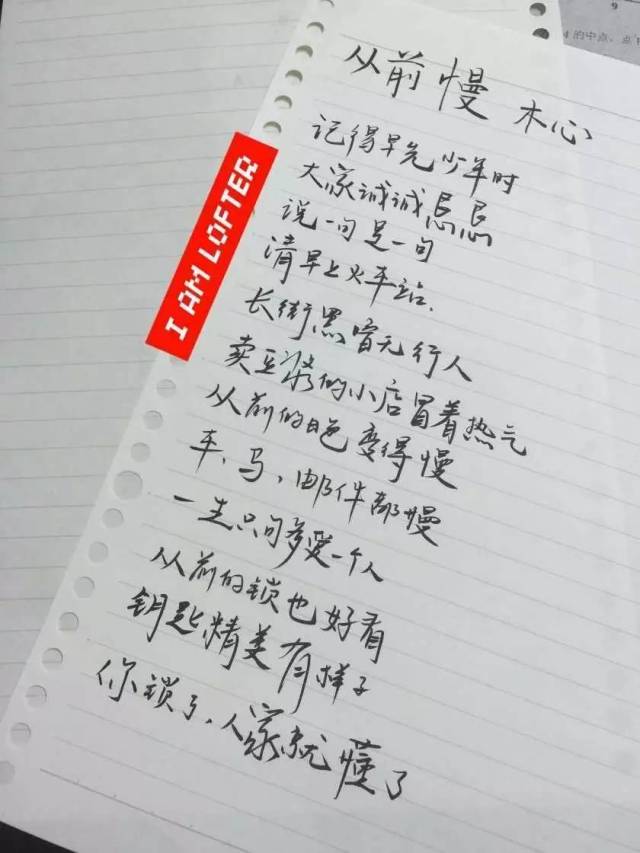 9
4 的中点、点
从前慢 木心
记得早先少年时
大家诚诚恳恳
说一句是一句
清早上火车站.
长街黑暗无行人
卖豆浆的小店冒着热气
从前的日色变得慢
车、马、邮件都慢
一生只句多爱一个人
从前的锁也好看
钥匙精美有样子
你锁了.人家就懂了
I AM LOFTER